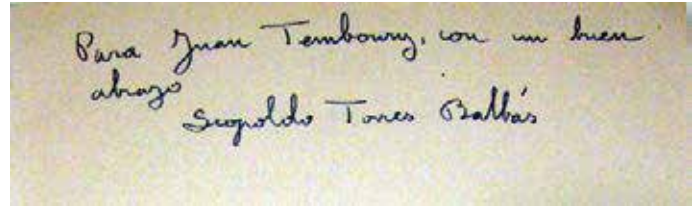 Para Juan Temboury, con un buen
abrazo
Leopoldo Torres Balbás